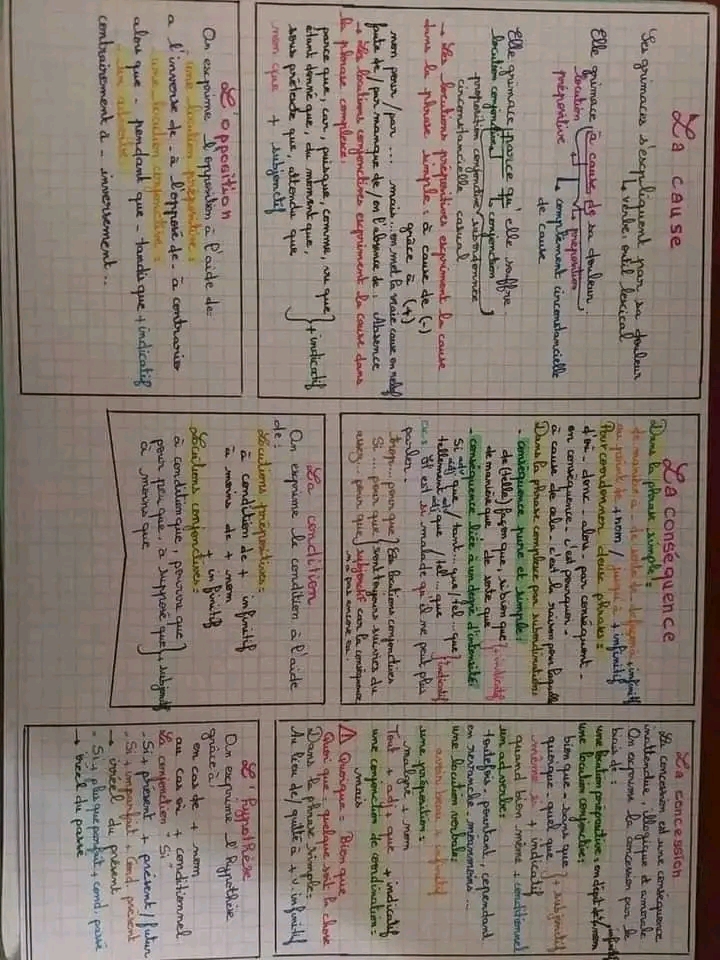 La cause
Ses grimaces s'expliquent par sa douleur
↳ verbe, outil lexical
Elle grimace à cause de sa douleur.
locution ↳ préposition
prépositive ↳ complément circonstancielle
de cause
Elle grimace parce qu'elle souffre.
locution conjonctive ↳ conjonction
proposition conjonctive subordonnée
circonstancielle causal
→ Les locutions prépositives expriment la cause
dans la phrase simple : à cause de (-)
grâce à (+)
non pour/par ... mais... on met la vraie cause en relief
faute de/par manque de/en l'absence de : Absence
→ Les locutions conjonctives expriment la cause dans
la phrase complexe :
parce que, car, puisque, comme, vu que
étant donné que, du moment que, } + indicatif
sous prétexte que, attendu que
non que + subjonctif
L'opposition
On exprime l'opposition à l'aide de :
- une locution prépositive :
à l'inverse de - à l'opposé de - à contrario
- une locution conjonctive :
alors que - pendant que - tandis que + indicatif
- un adverbe
contrairement à - inversement...
La conséquence
Dans la phrase simple :
de manière à - de sorte de - de façon à + infinitif
au point de + nom / jusqu'à + infinitif
Pour coordonner deux phrases :
d'où - donc - alors - par conséquent -
en conséquence - c'est pourquoi -
à cause de cela - c'est la raison pour laquelle
Dans la phrase complexe par subordination :
- conséquence pure et simple :
de (telle) façon que, si bien que } + indicatif
de manière que - de sorte que
- conséquence liée à un degré d'intensité
Si adj que / tant... que / tel ... que } indicatif
tellement adj que / tel ... que
ex : Il est si malade qu'il ne peut plus
parler.
trop... pour que } Ces locutions conjonctives
Si ... pour que } sont toujours suivies du
assez... pour que } subjonctif car la conséquence
n'a pas encore eu.
La condition
On exprime la condition à l'aide
de :
Locutions prépositives :
à condition de + infinitif
à moins de + nom
+ infinitif
Locutions conjonctives :
à condition que, pourvu que
pour peu que, à supposé que } + subjonctif
à moins que
La concession
La concession est une conséquence
inattendue, illogique et anormale
On exprime la concession par le
biais de :
une locution prépositive : en dépit de + nom
infinitif
une locution conjonctive :
bien que - sans que } + subjonctif
quoique - quel que
même si + indicatif
quand bien même + conditionnel
un adverbe :
toutefois, pourtant, cependant
en revanche - néanmoins ...
une locution verbale :
avoir beau + infinitif
une préposition :
malgré + nom
Tout + adj + que + indicatif
une conjonction de coordination :
mais
⚠ Quoique = Bien que
Quoi que = quelque soit la chose
Dans la phrase simple :
Au lieu de / quitte à + v. infinitif
L'hypothèse
On exprime l'hypothèse
grâce à
en cas de + nom
au cas où + conditionnel
La conjonction "Si"
- Si + présent + présent / futur
- Si + imparfait + Cond. présent
→ irréel du présent
- Si + plus que parfait + cond. passé
→ irréel du passé